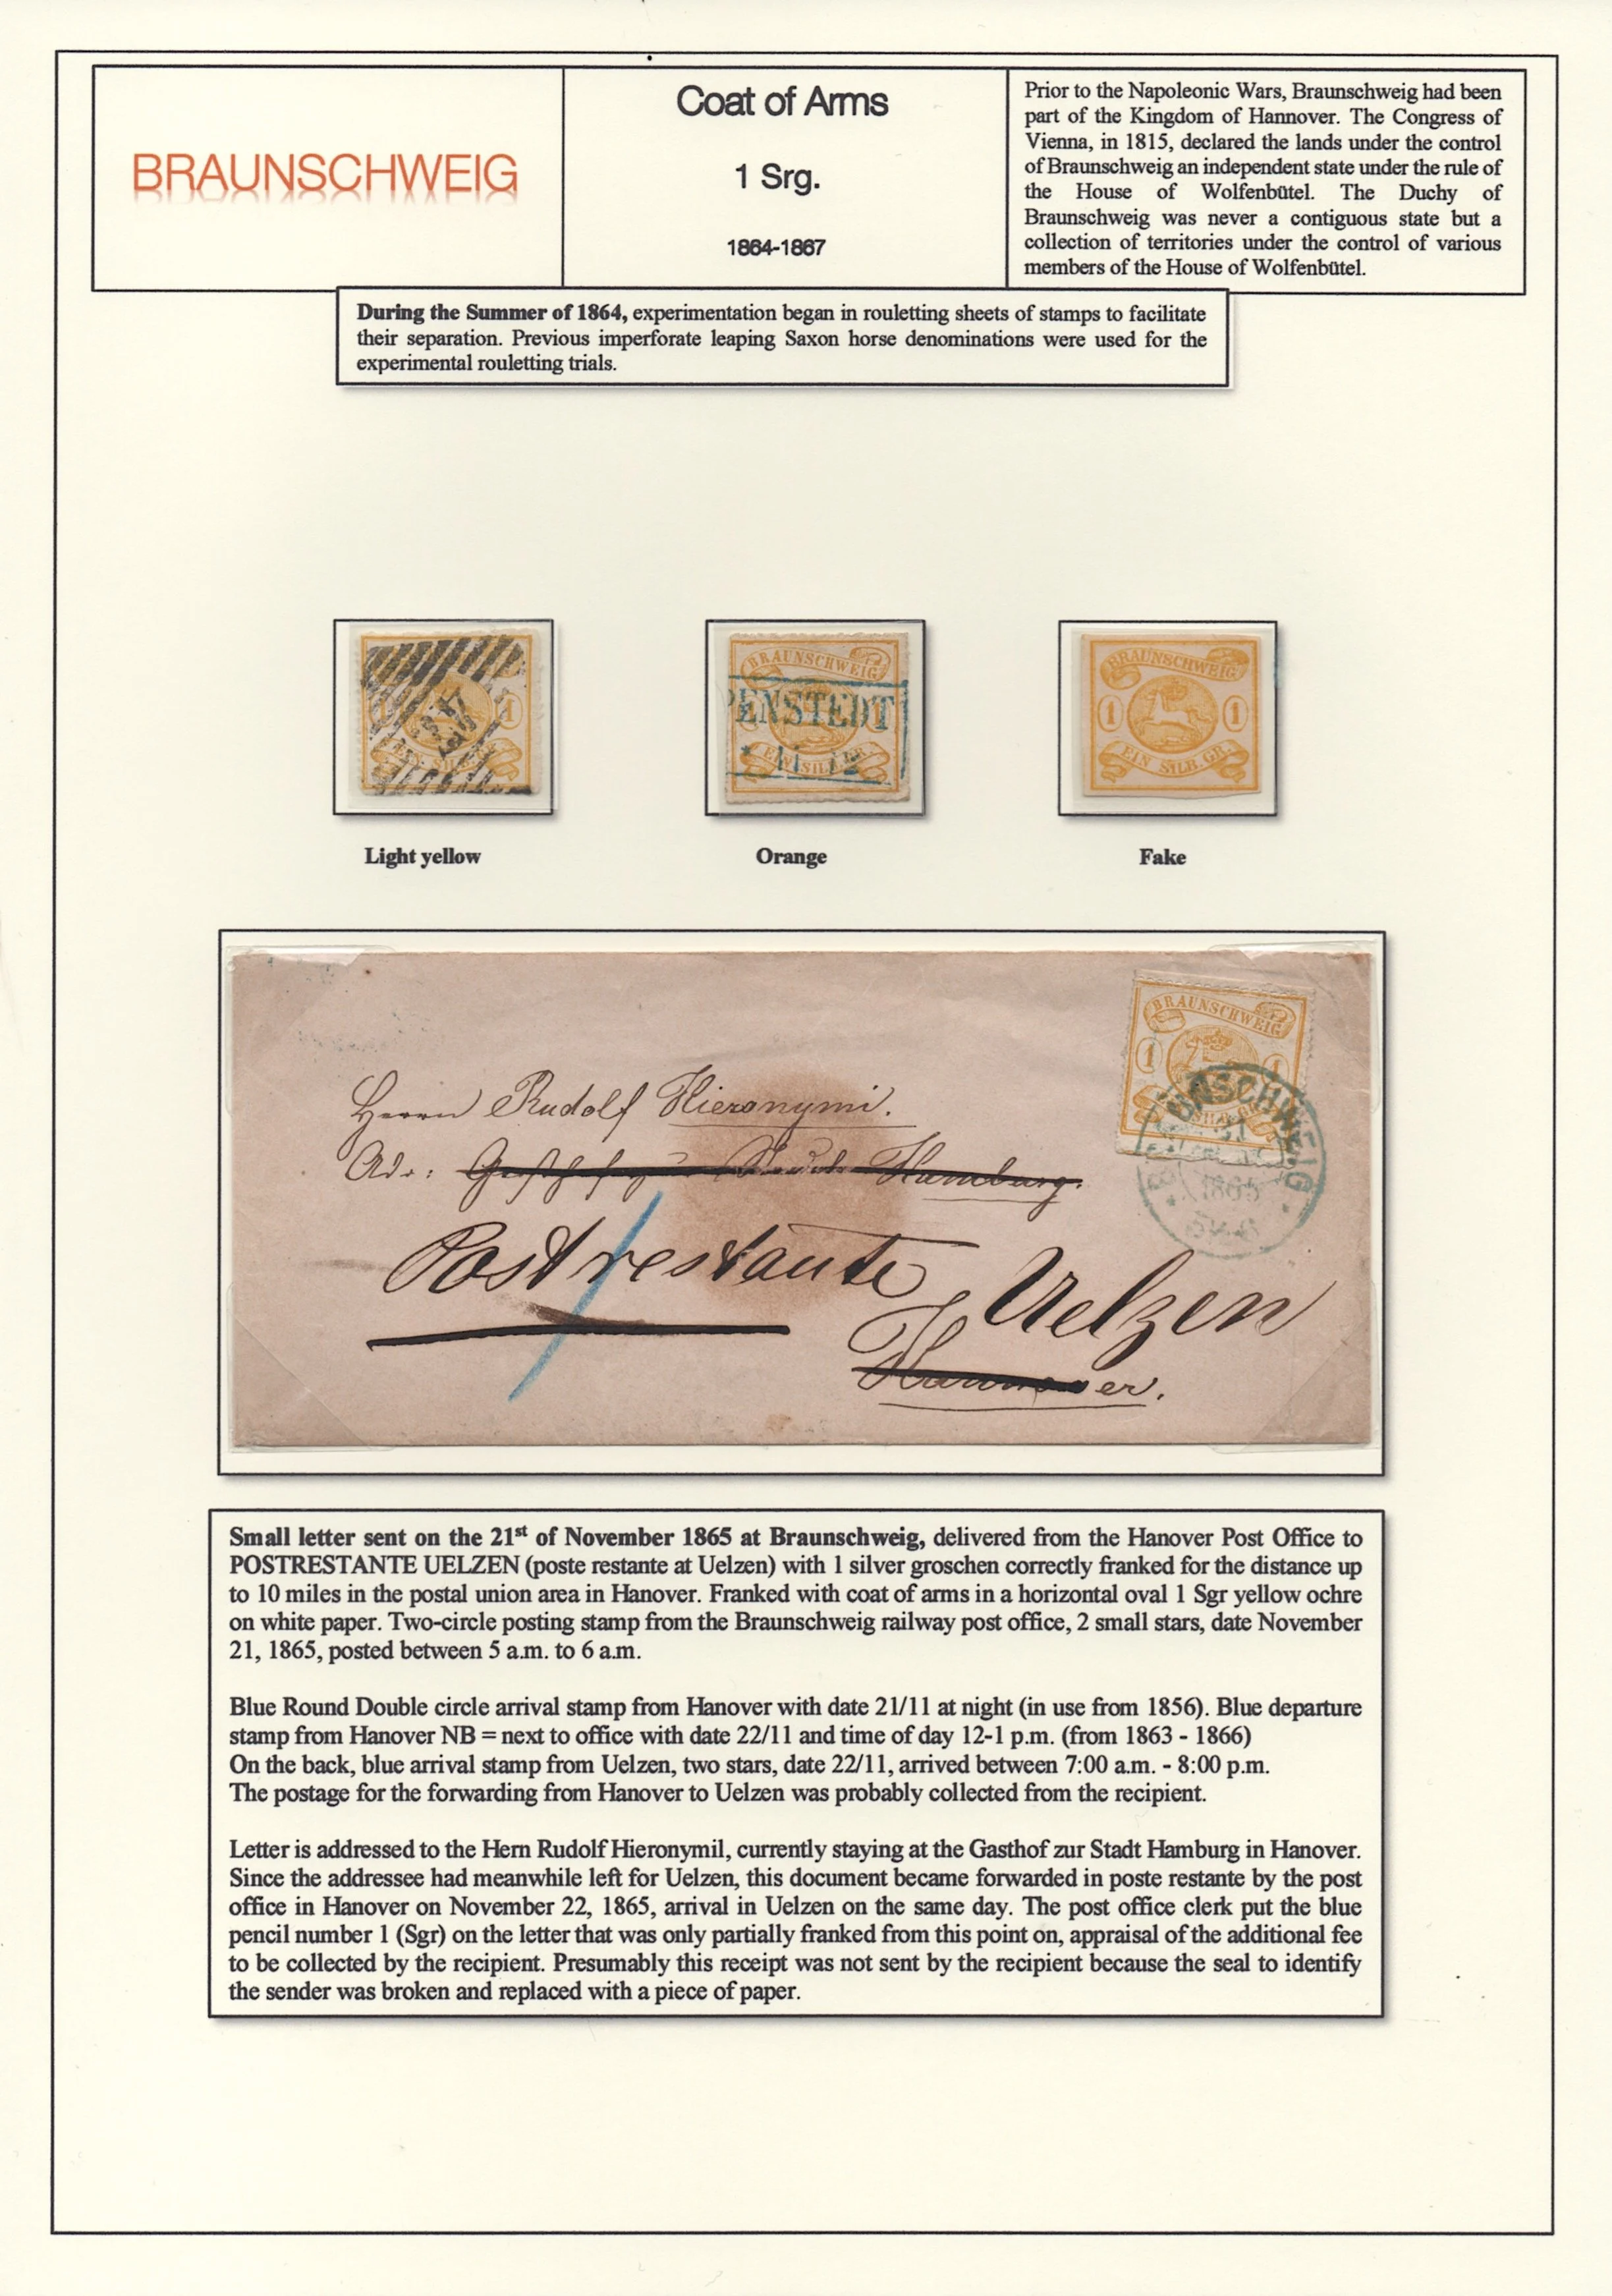 BRAUNSCHWEIG
Coat of Arms
1 Srg.
1864-1867
Prior to the Napoleonic Wars, Braunschweig had been
part of the Kingdom of Hannover. The Congress of
Vienna, in 1815, declared the lands under the control
of Braunschweig an independent state under the rule of
the House of Wolfenbütel. The Duchy of
Braunschweig was never a contiguous state but a
collection of territories under the control of various
members of the House of Wolfenbütel.
During the Summer of 1864, experimentation began in rouletting sheets of stamps to facilitate
their separation. Previous imperforate leaping Saxon horse denominations were used for the
experimental rouletting trials.
1
EIN SILB.
Light yellow
BRAUNSCHWEIG
PENSTEDT
EIN SILB.GR.
Orange
BRAUNSCHWEIG
1 1
EIN SILB.GR.
Fake
BRAUNSCHWEIG
1 1
SILB.GR.
BRAUNSCHWEIG
21
1865
5-6
Herrn Rudolf Hieronymi.
Adr: Hamburg.
Post restante Uelzen
Hannover.
Small letter sent on the 21st of November 1865 at Braunschweig, delivered from the Hanover Post Office to
POSTRESTANTE UELZEN (poste restante at Uelzen) with 1 silver groschen correctly franked for the distance up
to 10 miles in the postal union area in Hanover. Franked with coat of arms in a horizontal oval 1 Sgr yellow ochre
on white paper. Two-circle posting stamp from the Braunschweig railway post office, 2 small stars, date November
21, 1865, posted between 5 a.m. to 6 a.m.
Blue Round Double circle arrival stamp from Hanover with date 21/11 at night (in use from 1856). Blue departure
stamp from Hanover NB = next to office with date 22/11 and time of day 12-1 p.m. (from 1863 - 1866)
On the back, blue arrival stamp from Uelzen, two stars, date 22/11, arrived between 7:00 a.m. - 8:00 p.m.
The postage for the forwarding from Hanover to Uelzen was probably collected from the recipient.
Letter is addressed to the Hern Rudolf Hieronymil, currently staying at the Gasthof zur Stadt Hamburg in Hanover.
Since the addressee had meanwhile left for Uelzen, this document became forwarded in poste restante by the post
office in Hanover on November 22, 1865, arrival in Uelzen on the same day. The post office clerk put the blue
pencil number 1 (Sgr) on the letter that was only partially franked from this point on, appraisal of the additional fee
to be collected by the recipient. Presumably this receipt was not sent by the recipient because the seal to identify
the sender was broken and replaced with a piece of paper.